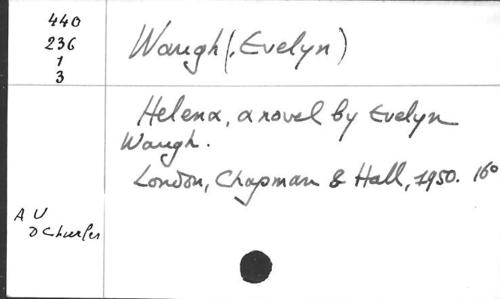 440
236
1
3
Waugh (, Evelyn)
Helena, a novel by Evelyn
Waugh.
London, Chapman & Hall, 1950. 160
A U